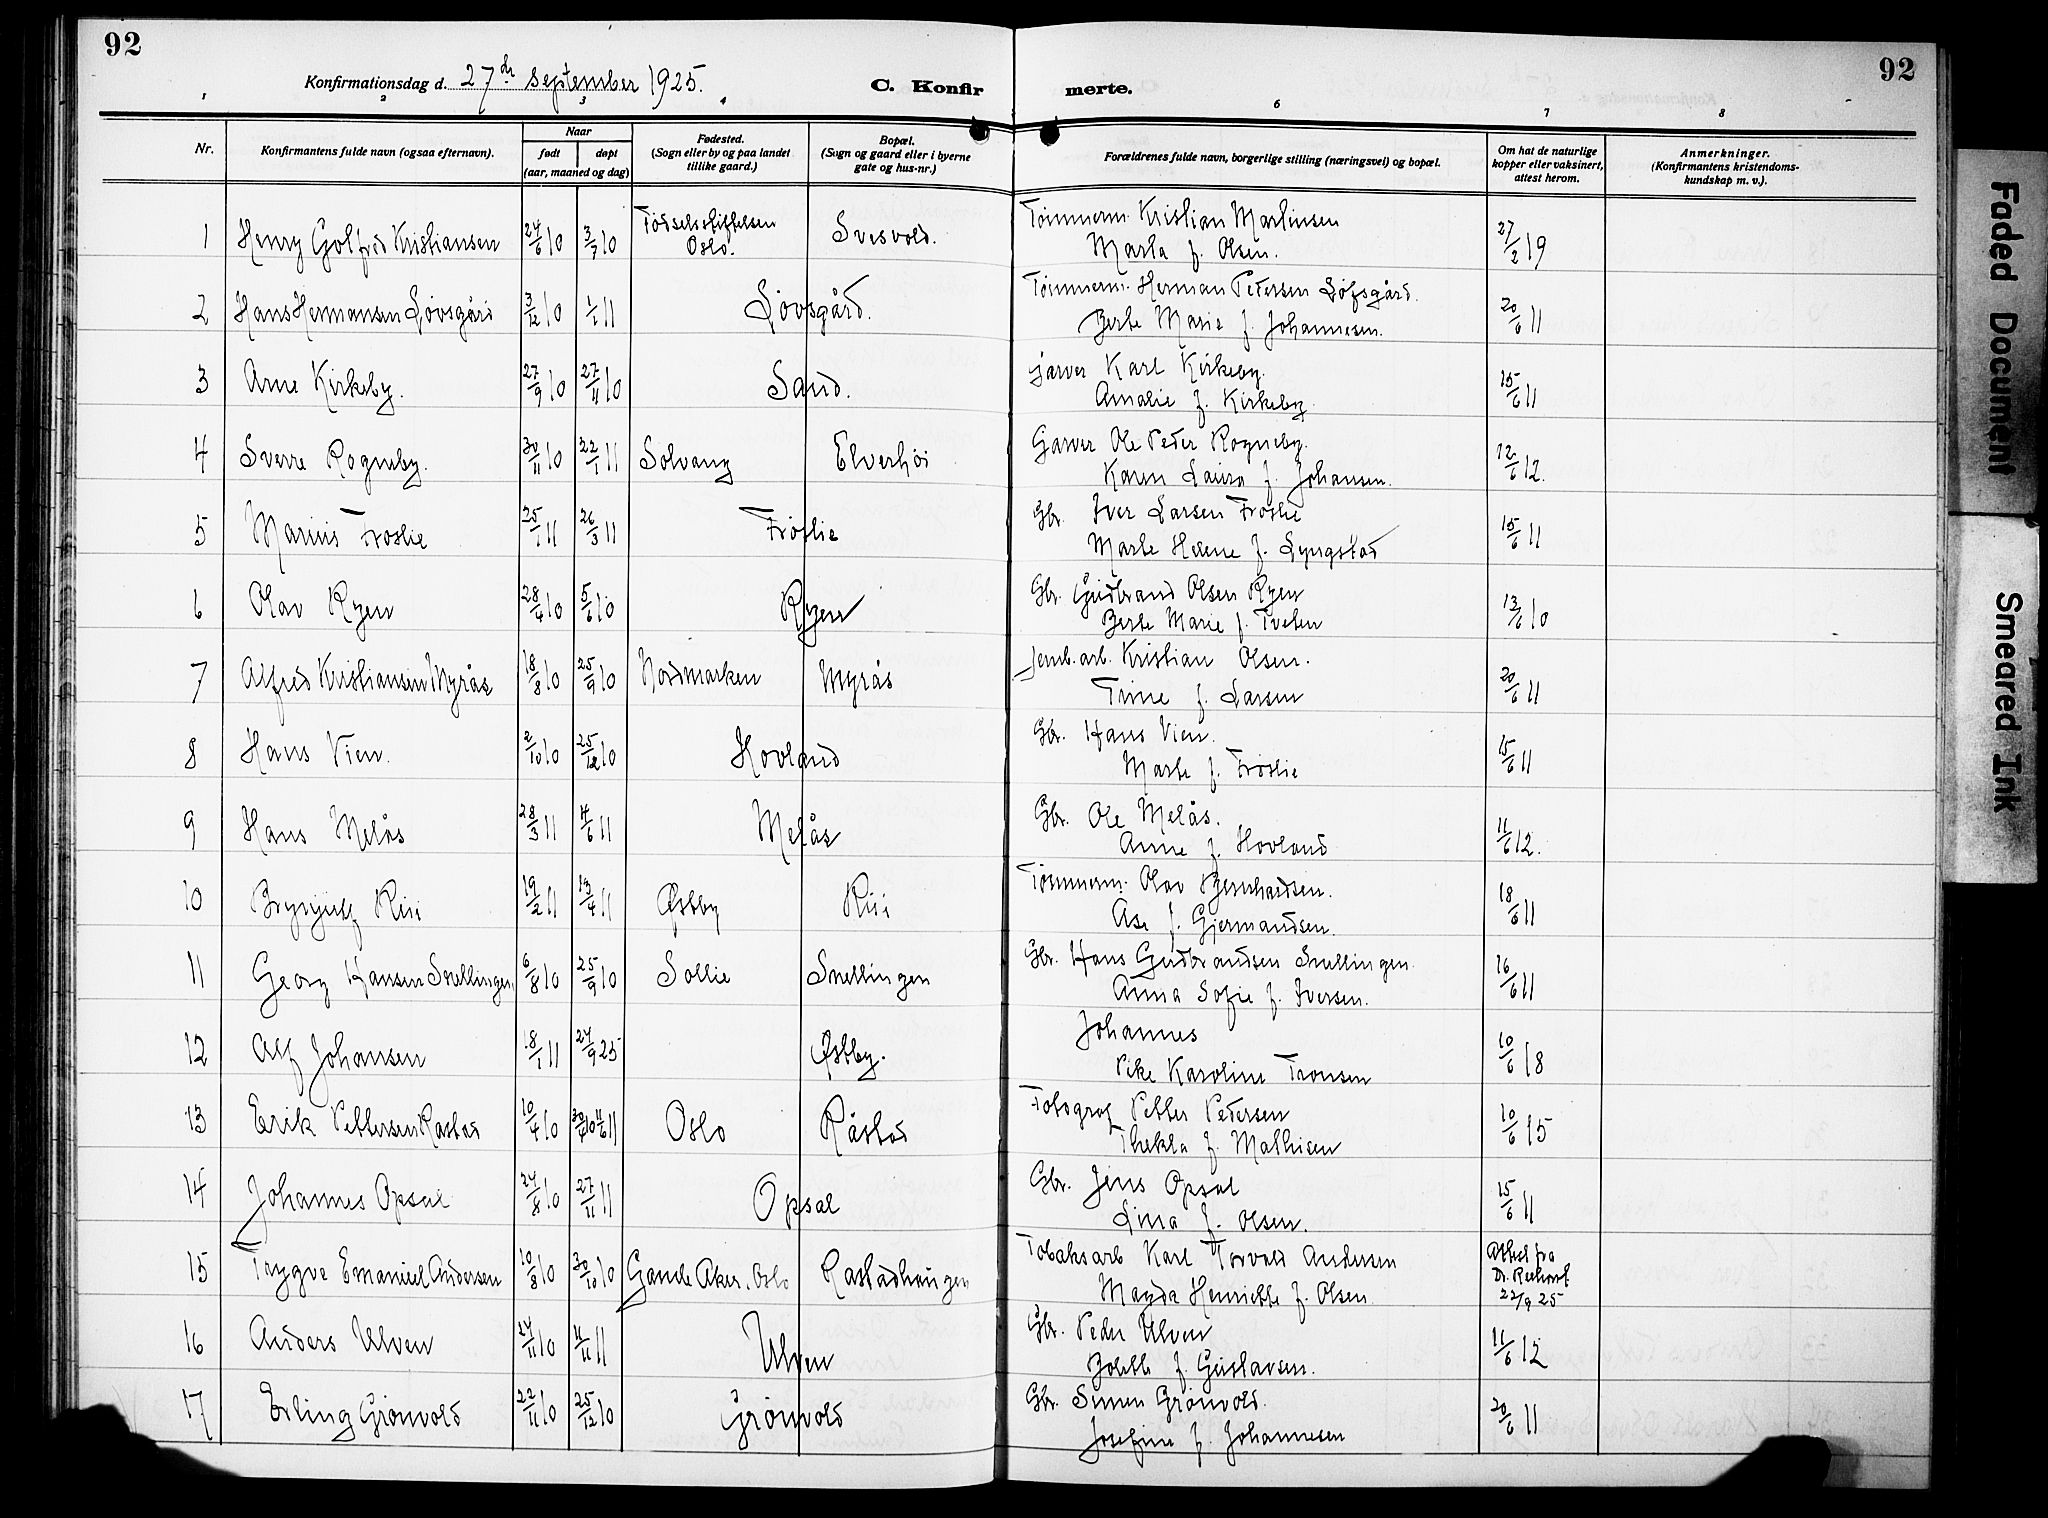 92
92
Konfirmationsdag d. 27de september 1925.
C. Konfirmerte.
1 2 3 4 6 7 8
Nr.
Konfirmantens fulde navn (ogsaa efternavn).
Naar
født
døpt
(aar, maaned og dag)
Fødested.
(Sogn eller by og paa landet
tillike gaard.)
Bopæl.
(Sogn og gaard eller i byerne
gate og hus-nr.)
Forældrenes fulde navn, borgerlige stilling (næringsvei) og bopæl.
Om hat de naturlige
kopper eller vaksinert,
attest herom.
Anmerkninger.
(Konfirmantens kristendoms-
kundskap m. v.).
1 Henry Golfred Kristiansen 24/6 10 3/7 10 Fødselsstiftelsen Oslo. Svesvold. Tømmerm. Kristian Martinsen 27/2 19
Marta f. Olsen.
2 Hans Hermansen Løvsgård 3/12 10 1/1 11 Løvsgård. Tømmerm. Herman Petersen Løfsgård. 20/6 11
Berte Marie f. Johannesen.
3 Arne Kirkeby. 27/9 10 27/11 10 Sand. Garver Karl Kirkeby. 15/6 11
Amalie f. Kirkeby.
4 Sverre Rogneby. 30/11 10 22/1 11 Solvang Elverhöi Garver Ole Peder Rogneby. 12/6 12.
Karen Laura f. Johansen.
5 Marius Frøslie 25/1 11 26/3 11 Frøslie Gbr. Iver Larsen Frøslie 15/6 11
Marte Helene f. Lyngstad
6 Olav Ryen 28/4 10 5/6 10 Ryen Gbr. Gudbrand Olsen Ryen 13/6 10
Berte Marie f. Tveten
7 Alfred Kristiansen Myrås 18/8 10 25/9 10 Nordmarken Myrås Jernb.arb. Kristian Olsen. 20/6 11
Trine f. Larsen
8 Hans Vien. 2/10 10 25/12 10 Hovland Gbr. Hans Vien. 15/6 11
Marte f. Frøslie
9 Hans Melås 28/3 11 4/6 11 Melås Gbr. Ole Melås. 11/6 12.
Anne f. Hovland
10 Brynjulf Rii 19/2 11 13/4 11 Østby Rii Tømmerm. Olav Bernhardsen. 18/6 11
Åse f. Gjermandsen.
11 Georg Hansen Snellingen. 6/8 10 25/9 10 Sollie Snellingen Gbr. Hans Gudbrandsen Snellingen. 16/6 11
Anna Sofie f. Iversen.
12 Alf Johansen 18/1 11 27/9 25 Østby. Johannes 10/6 18
Pike Karoline Tronsen
13 Erik Pettersen Råstad 10/4 10 30/4 10 4/6 11 Oslo Råstad Fotograf Petter Petersen 10/6 15
Thekla f. Mathisen
14 Johannes Opsal 24/8 10 27/11 11 Opsal Gbr. Jens Opsal 15/6 11
Lina f. Olsen.
15 Trygve Emanuel Andersen 10/8 10 30/10 10 Gamle Aker. Oslo Råstadhaugen Tobaksarb Karl Torvald Andersen Attest fra
Magda Henriette f. Olsen. Dr. 22/9 25
16 Anders Ulven 24/11 10 4/11 11 Ulven Gbr. Peder Ulven 11/6 12
Bolette f. Gustavsen.
17 Erling Grønvold 22/11 10 25/12 10 Grønvold Gbr. Simen Grønvold. 20/6 11
Josefine f. Johannesen
Faded Document
Smeared Ink